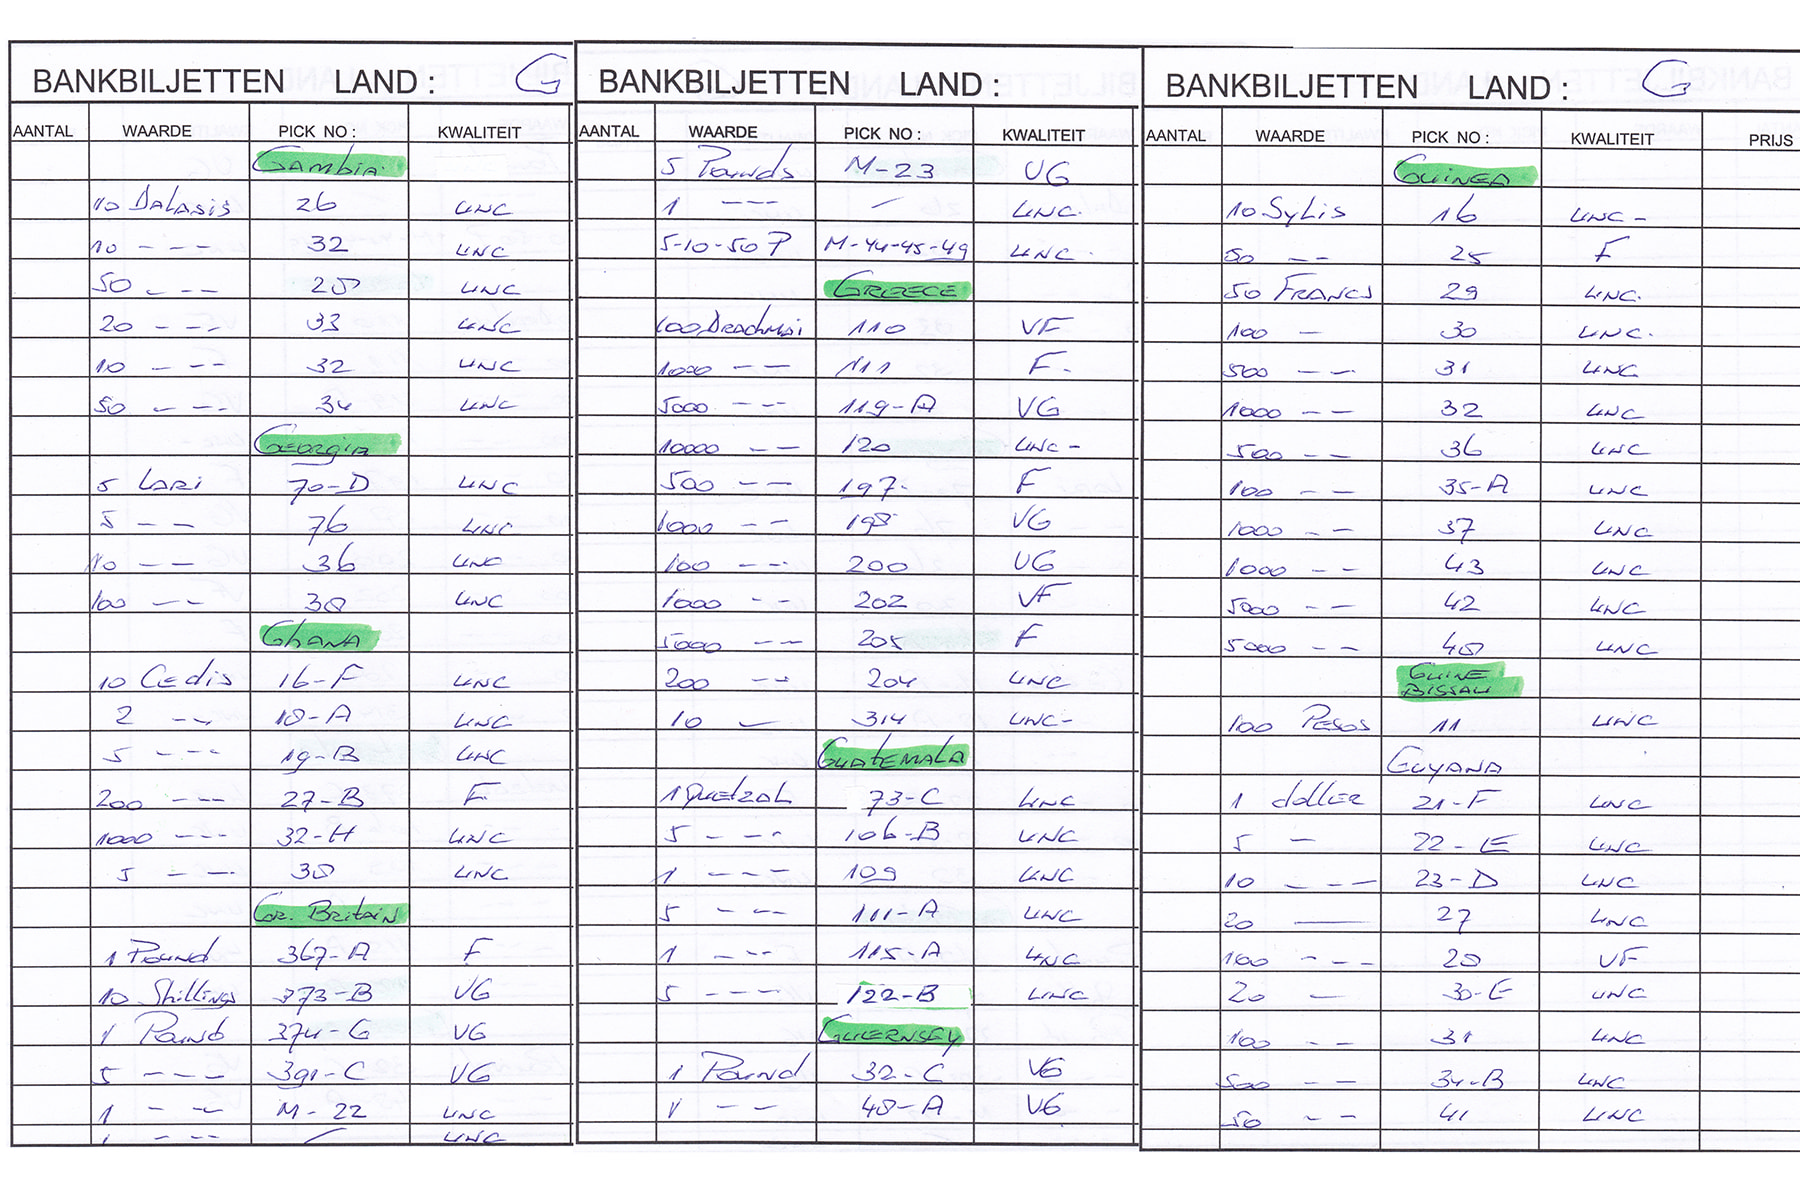 BANKBILJETTEN LAND: G
AANTAL WAARDE PICK NO: KWALITEIT
GAMBIA
10 DALASIS 26 UNC
10 --- 32 UNC
50 --- 28 UNC
20 --- 33 UNC
10 --- 32 UNC
50 --- 34 UNC
GEORGIA
5 LARI 70-D UNC
5 -- 76 UNC
10 -- 36 UNC
100 -- 38 UNC
GHANA
10 Cedis 16-F UNC
2 -- 18-A UNC
5 --- 19-B UNC
200 --- 27-B F
1000 --- 32-H UNC
5 --- 38 UNC
GR. Britain
1 Pound 367-A F
10 Shillings 373-B VG
1 Pound 374-G VG
5 --- 391-C VG
1 -- M-22 UNC
1 --- — UNC
BANKBILJETTEN LAND:
AANTAL WAARDE PICK NO: KWALITEIT
5 Pounds M-23 VG
1 --- — UNC.
5-10-50 P M-44-45-49 UNC.
GREECE
100 Drachmai 110 VF
1000 -- 111 F.
5000 --- 119-A VG
10000 -- 120 UNC-
500 -- 197. F
1000 -- 198 VG
100 --- 200 VG
1000 -- 202 VF
5000 -- 205 F
200 -- 204 UNC
10 — 314 UNC-
GUATEMALA
1 Quetzal 73-C UNC
5 --- 106-B UNC
1 --- 109 UNC
5 --- 111-A UNC
1 --- 115-A UNC
5 --- 122-B UNC
GUERNSEY
1 Pound 32-C VG
1 -- 48-A VG
BANKBILJETTEN LAND: G
AANTAL WAARDE PICK NO: KWALITEIT PRIJS
GUINEA
10 Sylis 16 UNC-
50 -- 25 F
50 FRANCS 29 UNC.
100 - 30 UNC.
500 -- 31 UNC
1000 -- 32 UNC
500 -- 36 UNC
100 -- 35-A UNC
1000 -- 37 UNC
1000 -- 43 UNC
5000 -- 42 UNC
5000 -- 40 UNC
GUINE
BISSAU
100 PESOS 11 UNC
GUYANA
1 doller 21-F UNC
5 - 22-E UNC
10 --- 23-D UNC
20 — 27 UNC
100 --- 28 VF
20 — 30-E UNC
100 -- 31 UNC
500 -- 34-B UNC
50 -- 41 UNC